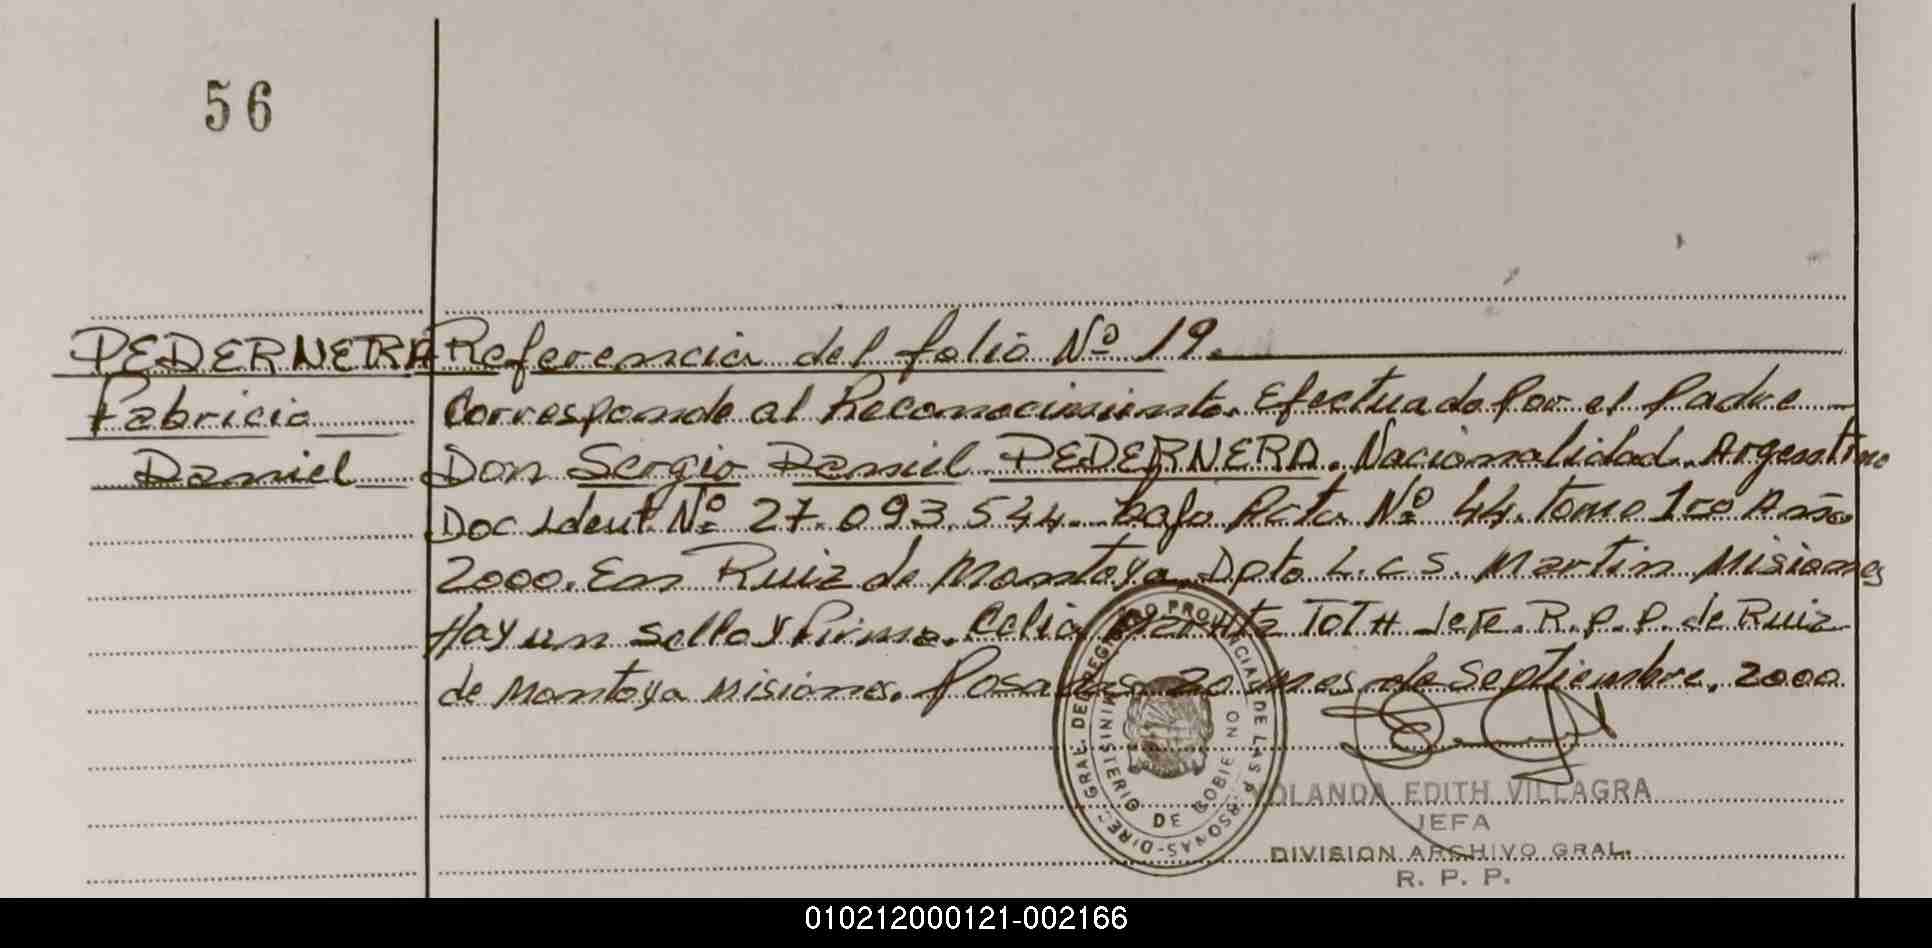 56
PEDERNERA Referencia del folio Nº 19.
Fabricio Corresponde al Reconocimiento. Efectuado Por el Padre
Daniel Don Sergio Daniel PEDERNERA. Nacionalidad. Argentino
Doc Ident. Nº 27.093.544. bajo Acta Nº 44. Tomo 1ro Año
2000. En Ruiz de Montoya, Dpto L.G.S. Martin Misiones
Hay un Sello y Firma. Celia TOTH Jefe. R.P.P. de Ruiz
de Montoya Misiones. Posadas 20 mes de Septiembre. 2000
DIREC. GRAL. DEL REGISTRO PROVINCIAL DE LAS PERSONAS
MINISTERIO DE GOBIERNO
YOLANDA EDITH VILLAGRA
JEFA
DIVISION ARCHIVO GRAL.
R. P. P.
010212000121-002166